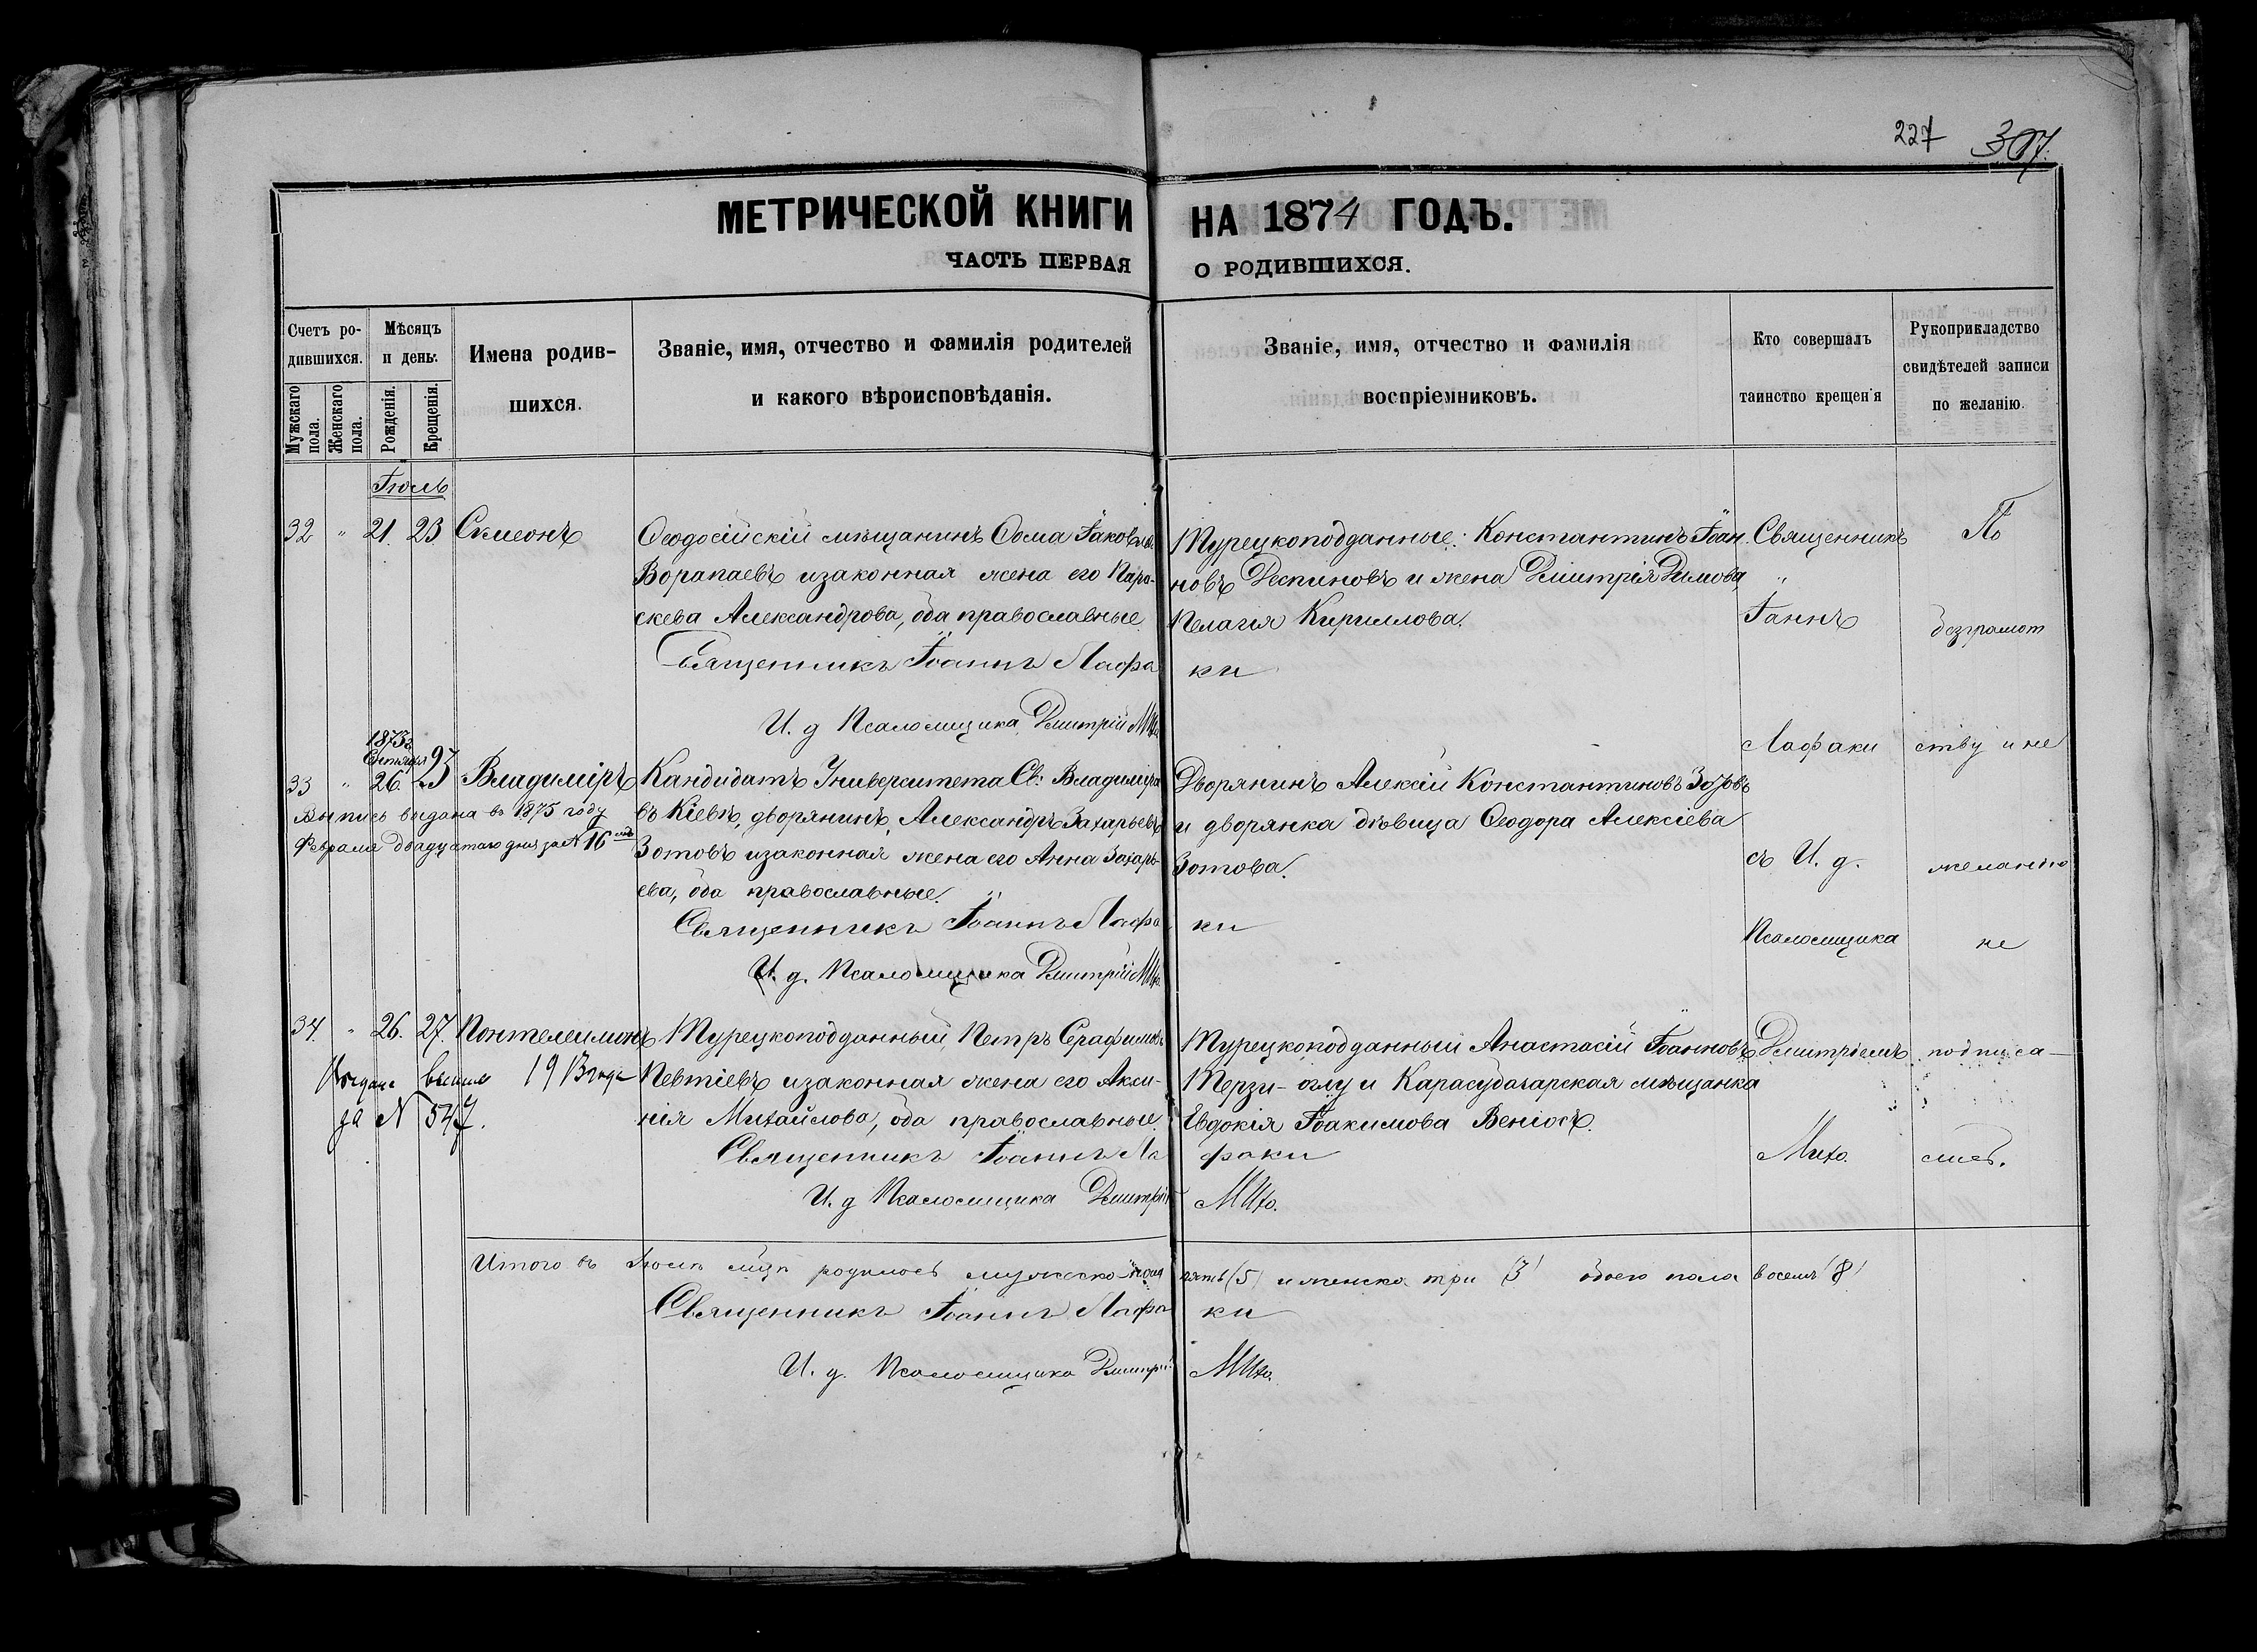 227 307.
МЕТРИЧЕСКОЙ КНИГИ НА 1874 ГОДЪ.
ЧАСТЬ ПЕРВАЯ О РОДИВШИХСЯ.
Счетъ родившихся.
Мужскаго пола.
Женскаго пола.
Мѣсяцъ и день.
Рожденія.
Крещенія.
Имена родив-
шихся.
Званіе, имя, отчество и фамилія родителей
и какого вѣроисповѣданія.
Званіе, имя, отчество и фамилія
воспріемниковъ.
Кто совершалъ
таинство крещенія
Рукоприкладство
свидѣтелей записи
по желанію.
Іюль
32 " 21. 23 Симеонъ
Ѳеодосійскій мѣщанинъ Ѳома Іаковлевъ
Ворапаевъ и законная жена его Пара-
скева Александрова, оба православные.
Священникъ Іоаннъ Лафаки
И. д Псаломщика Дмитрій Михо.
Турецкоподданные: Константинъ Іоан-
новъ Деспиновъ и жена Дмитрія Димова,
Пелагія Кириллова.
1873 г.
Сентября
33 " 26. 23 Владиміръ
Выпись выдана въ 1875 году
Февраля двадцатаго дня за № 16
Кандидатъ Университета Св. Владиміра
въ Кіевѣ, дворянинъ, Александръ Захарьевъ
Зотовъ и законная жена его Анна Захарь-
ева, оба православные.
Священникъ Іоаннъ Лафаки
И. д. Псаломщика Дмитрій Михо.
Дворянинъ Алексій Константиновъ Зотовъ
и дворянка дѣвица Ѳеодора Алексіева
Зотова.
34. " 26. 27. Понтелеимонъ
Выдана выпись 1913 года
за № 547.
Турецкоподданный, Петръ Серафимовъ
Певтіевъ и законная жена его Акси-
нія Михайлова, оба православные.
Священникъ Іоаннъ Лафаки
И. д Псаломщика Дмитрій Михо.
Турецкоподданный Анастасій Іоанновъ
Терзи-оглу и Карасубазарская мѣщанка
Евдокія Іоакимова Веніосъ.
Священникъ
"
Іоаннъ
Лафаки
съ И. д.
Псаломщика
Дмитріемъ
Михо.
По
безграмот
ству и не
желанію
не
подписа-
лись.
Итого въ Іюлѣ мцѣ родилось мужеска пола пять (5) и женска три (3) обоего пола восемь (8)
Священникъ Іоаннъ Лафаки
И. д. Псаломщика Дмитрій Михо.